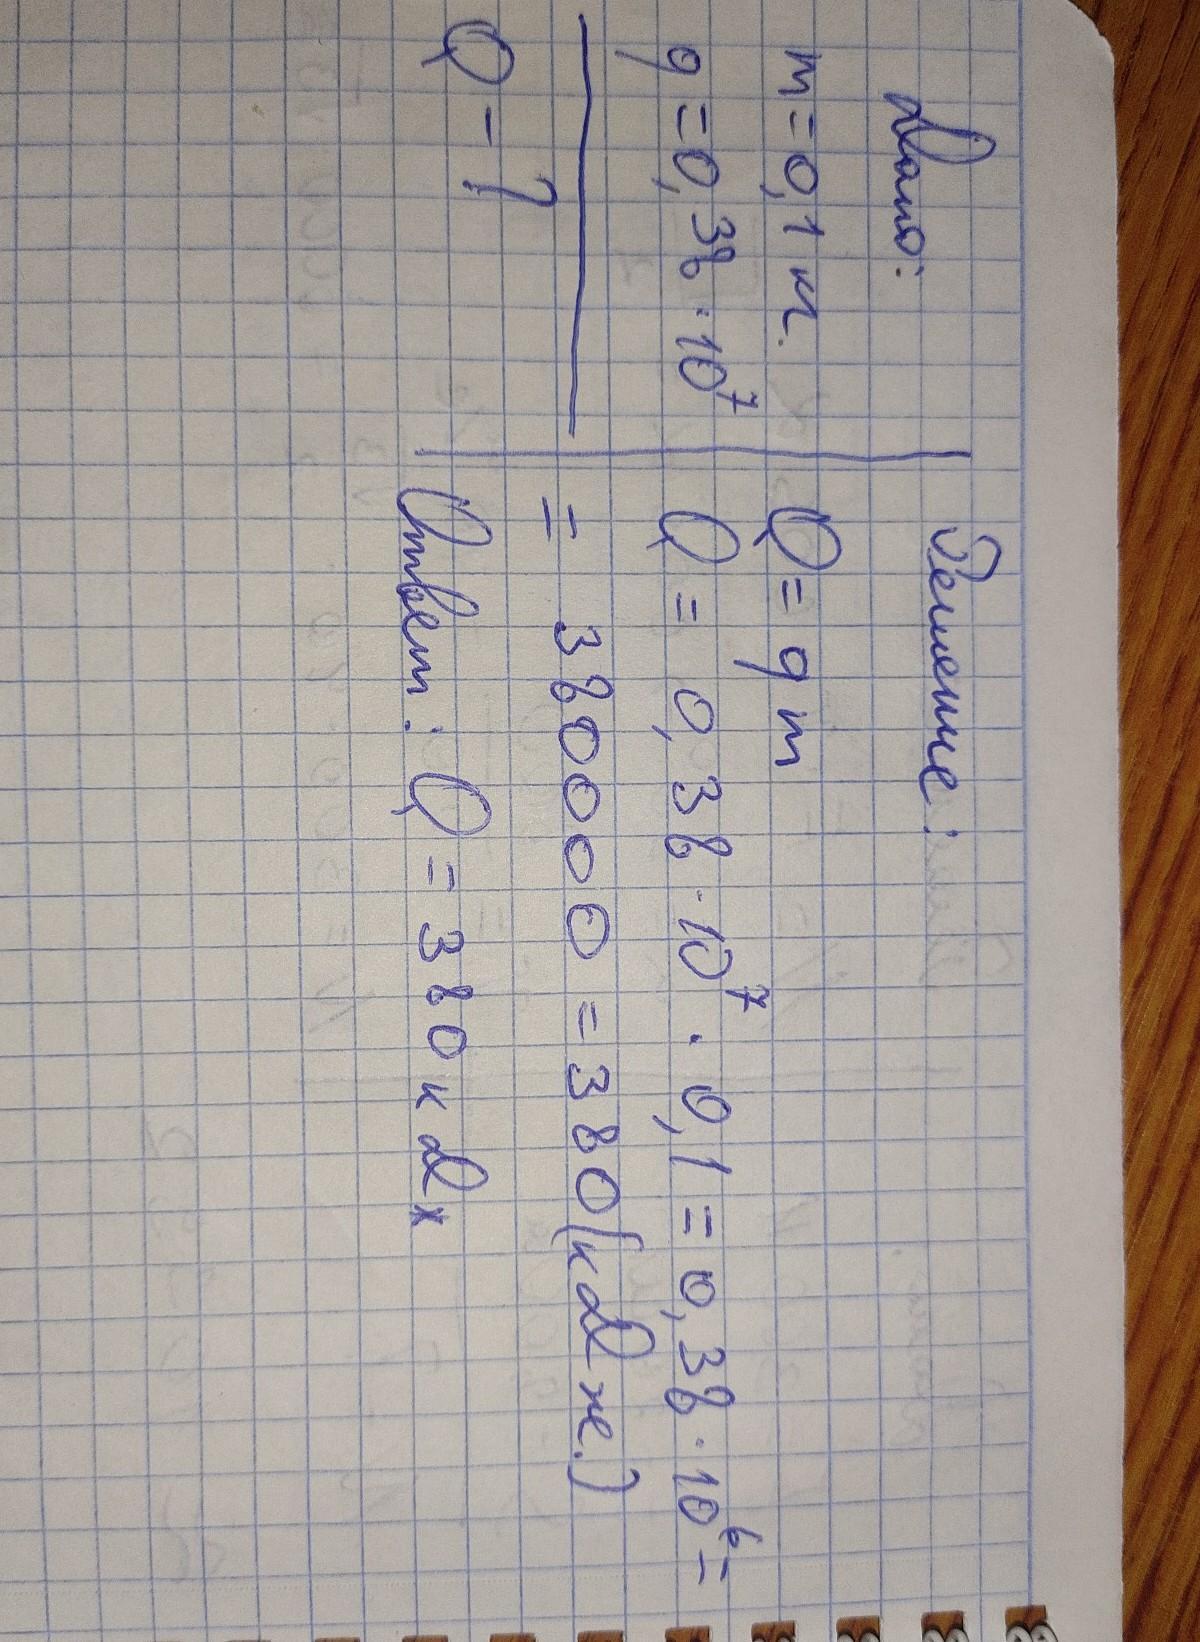 Дано:
m=0,1 кг.
q=0,38·10⁷
Q-?
Решение:
Q=qm
Q = 0,38·10⁷·0,1=0,38·10⁶=
= 380000=380(кДж.)
Ответ: Q=380кДж